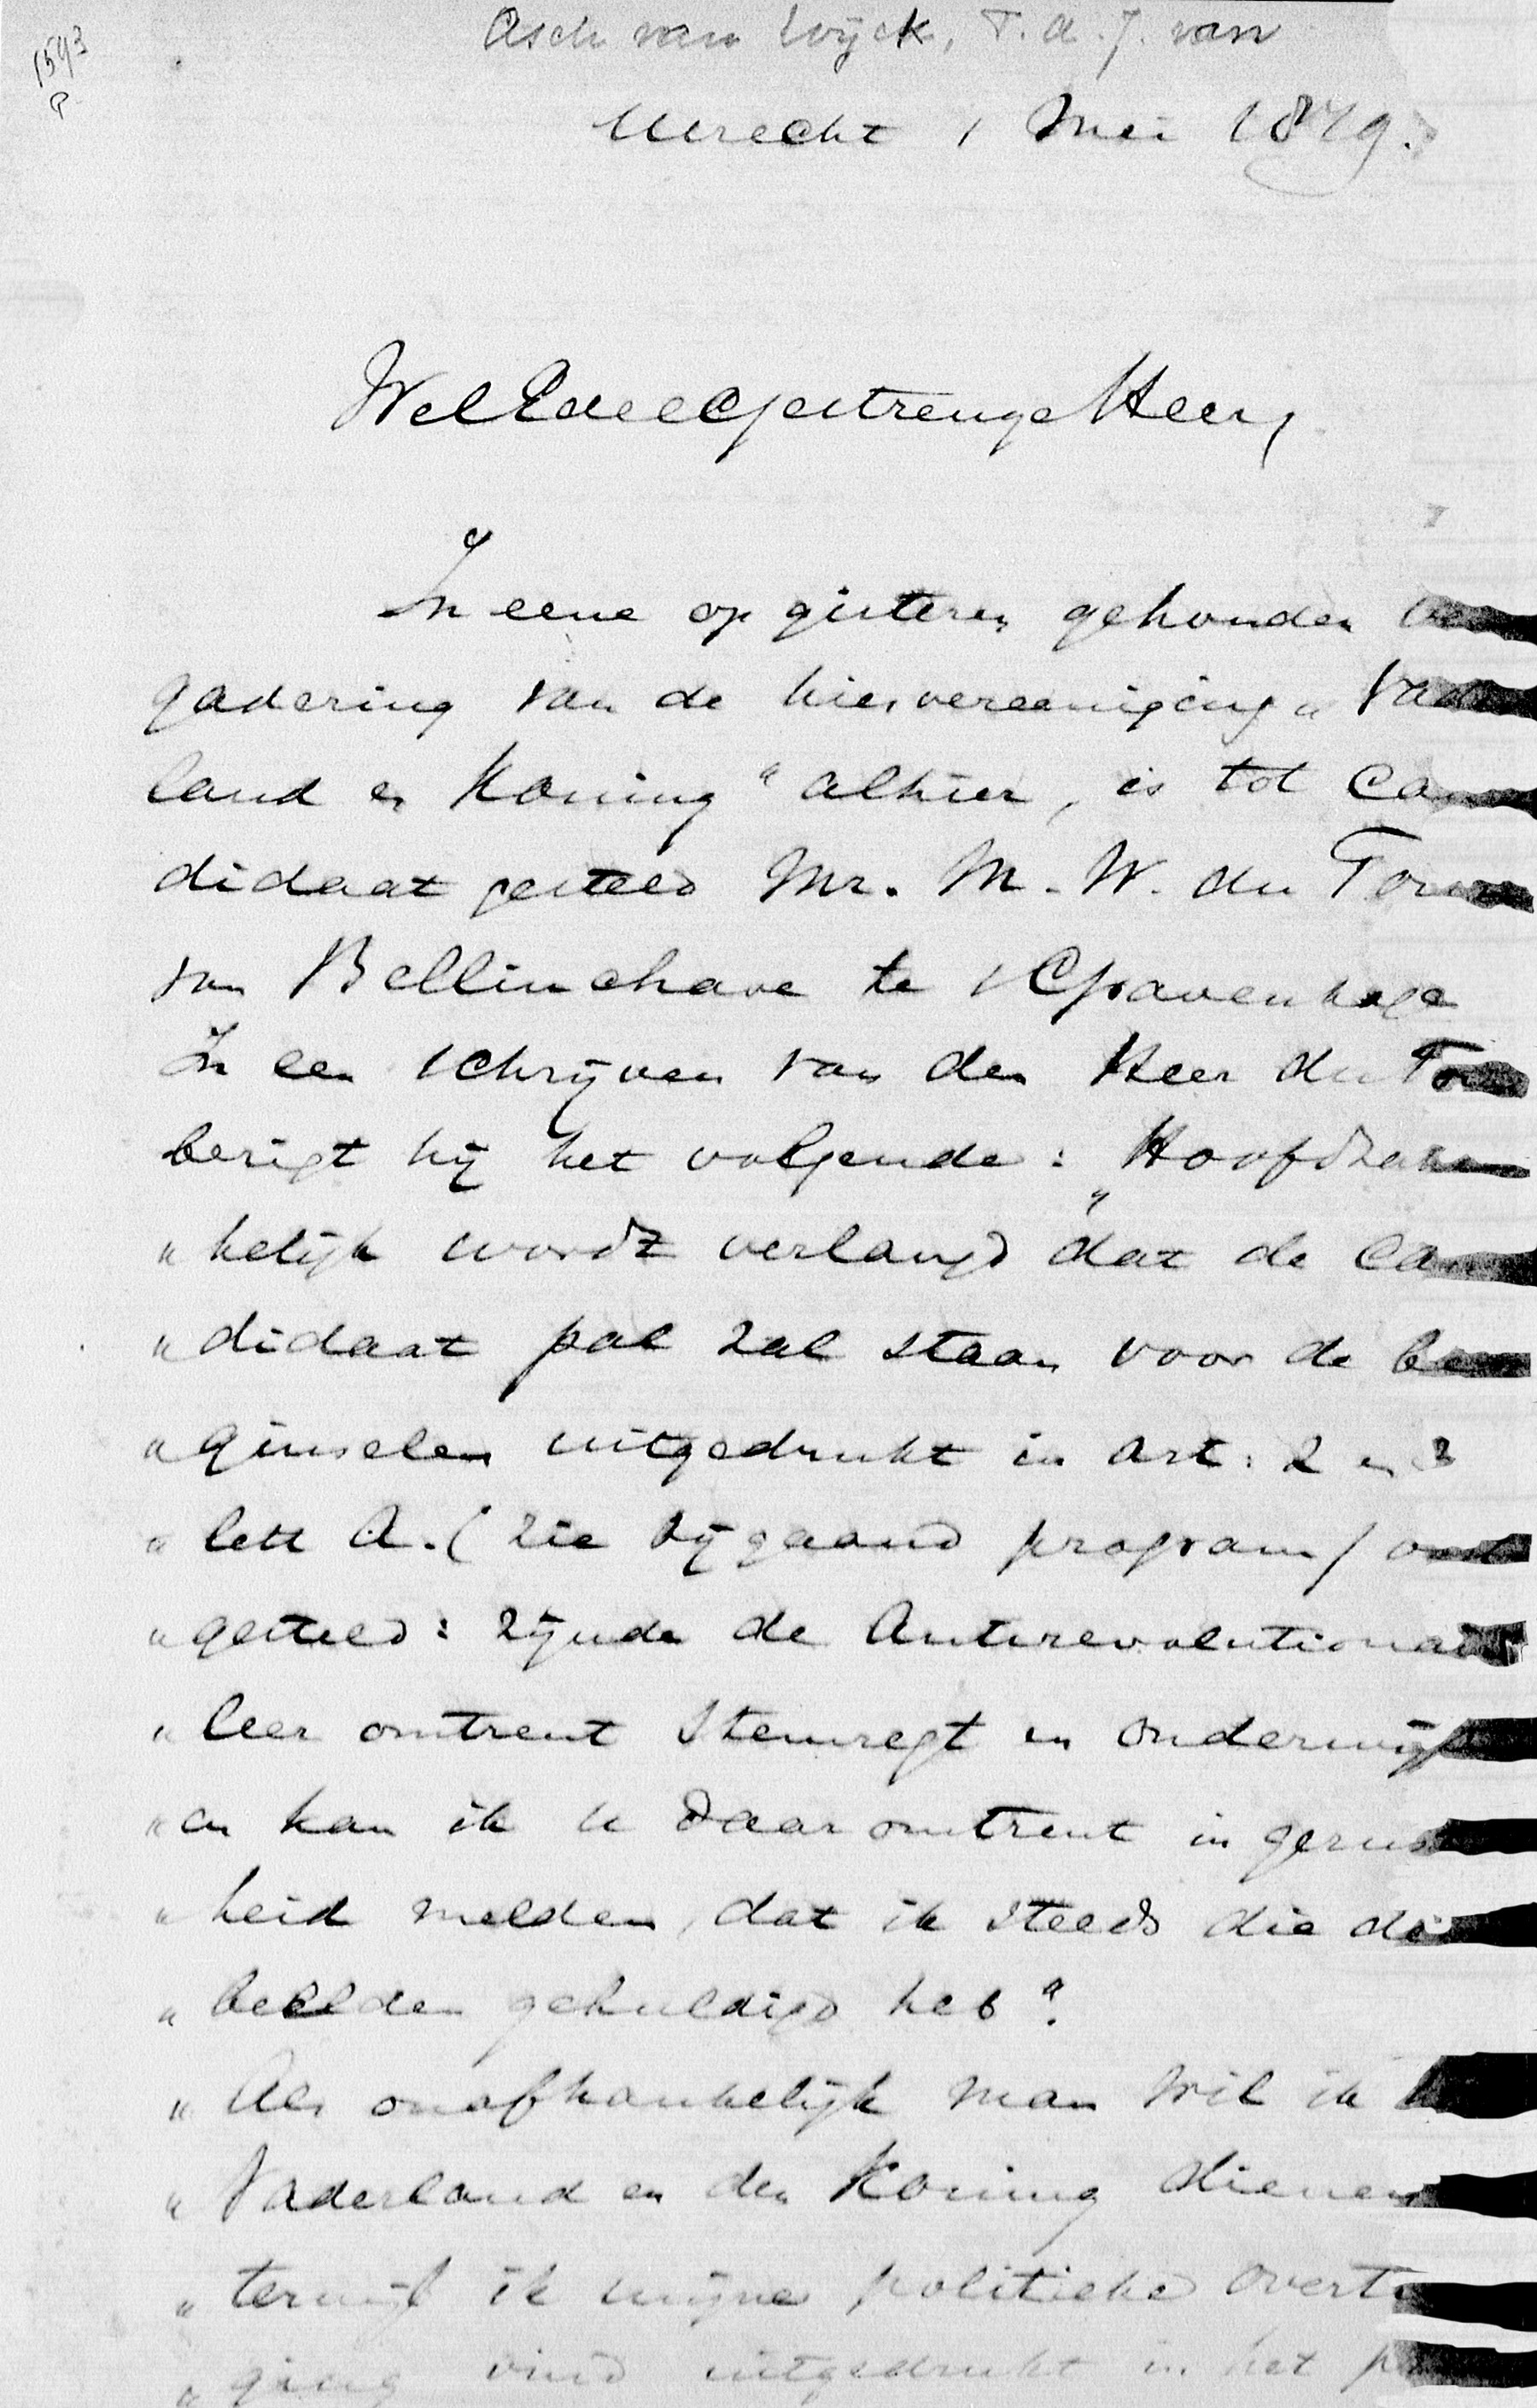 1593
P
Asch van Wijck, T. A. J. van
Utrecht 1 Mei 1879.
WelEdelGestrenge Heer,
In eene op gisteren gehouden ver
gadering van de kiesvereeniging „Vader
land en Koning" alhier, is tot Can
didaat gesteld Mr. M. W. du Tour
van Bellinchave te 'sGravenhage
In een schrijven van den Heer du Tour
berigt hij het volgende: „Hoofdzake
„kelijk wordt verlangd dat de Can
„didaat pal zal staan voor de be
„ginselen uitgedrukt in art: 2 en 3
„lett A. (zie bijgaand program)
„gesteld: zijnde de Antirevolutionair
„leer omtrent Stemregt en Onderwijs
„en kan ik U daaromtrent in gerust
„heid melden, dat ik steeds die
„beelden gehuldigd heb".
„Als onafhankelijk man wil ik
„Vaderland en den Koning dienen
„terwijl ik mijne politieke Overtui
„ging vind uitgedrukt in het